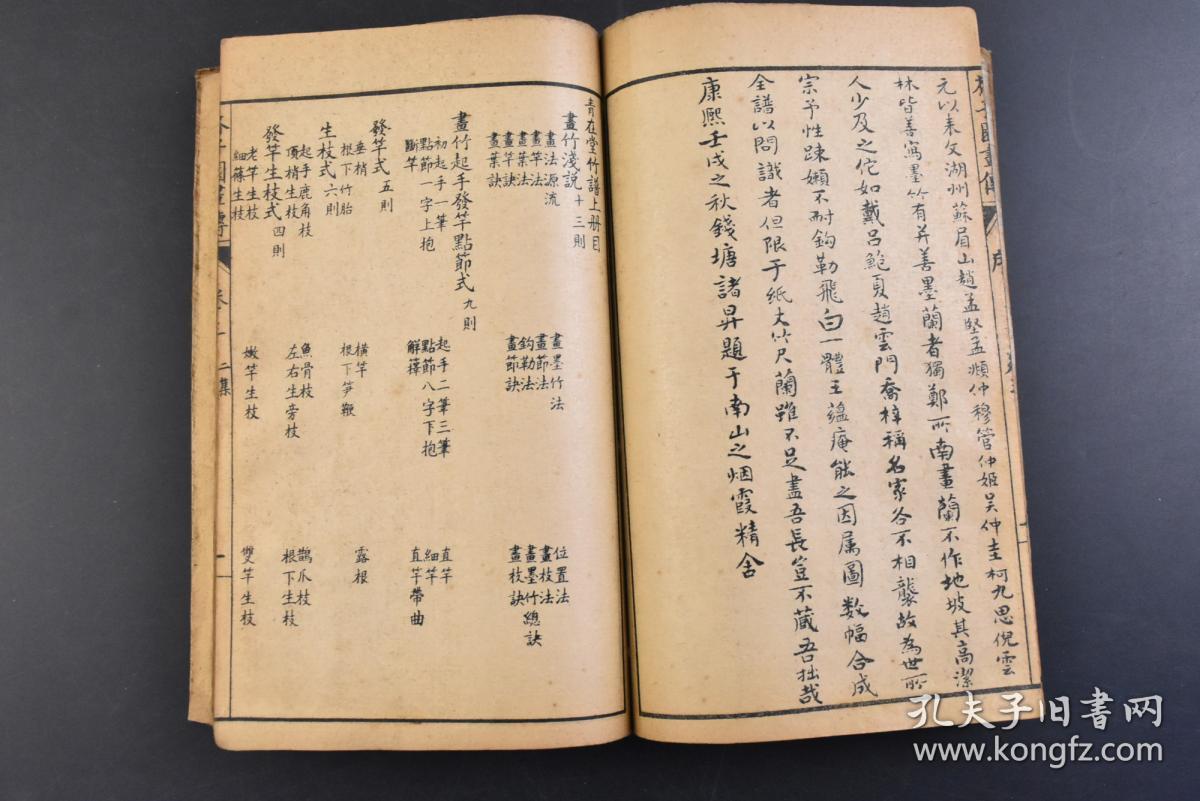 元以來文湖州蘇眉山趙孟堅孟頫仲穆管仲姬吳仲圭柯九思倪雲
林皆善寫墨竹有并善墨蘭者獨鄭所南畫蘭不作地坡其高潔
人少及之佗如戴呂鮑夏趙雲門喬梓稱名家各不相襲故為世所
宗予性踈嬾不耐鈎勒飛白一體王蘊庵能之因属圖數幅合成
全譜以問識者但限于紙丈以尺蘭雖不足盡吾長豈不蔵吾拙哉
康熙壬戌之秋錢塘諸昇題于南山之烟霞精舍
青在堂竹譜上册目
畫竹淺説 十三則
畫法源流 畫墨竹法 位置法
畫竿法 畫節法 畫枝法
畫葉法 鈎勒法 畫墨竹總訣
畫竿訣 畫節訣 畫枝訣
畫葉訣
畫竹起手發竿點節式 九則
初起手一筆 起手二筆三筆 直竿
點節一字上抱 點節八字下抱 細竿
斷竿 解籜 直竿帶曲
發竿式 五則
垂梢 橫竿 露根
根下竹胎 根下笋鞭
生枝式 六則
起手鹿角枝 魚骨枝 鵲爪枝
頂梢生枝 左右生旁枝 根下生枝
發竿生枝式 四則
老竿生枝 嫩竿生枝 雙竿生枝
細篠生枝
孔夫子旧書网
www.kongfz.com